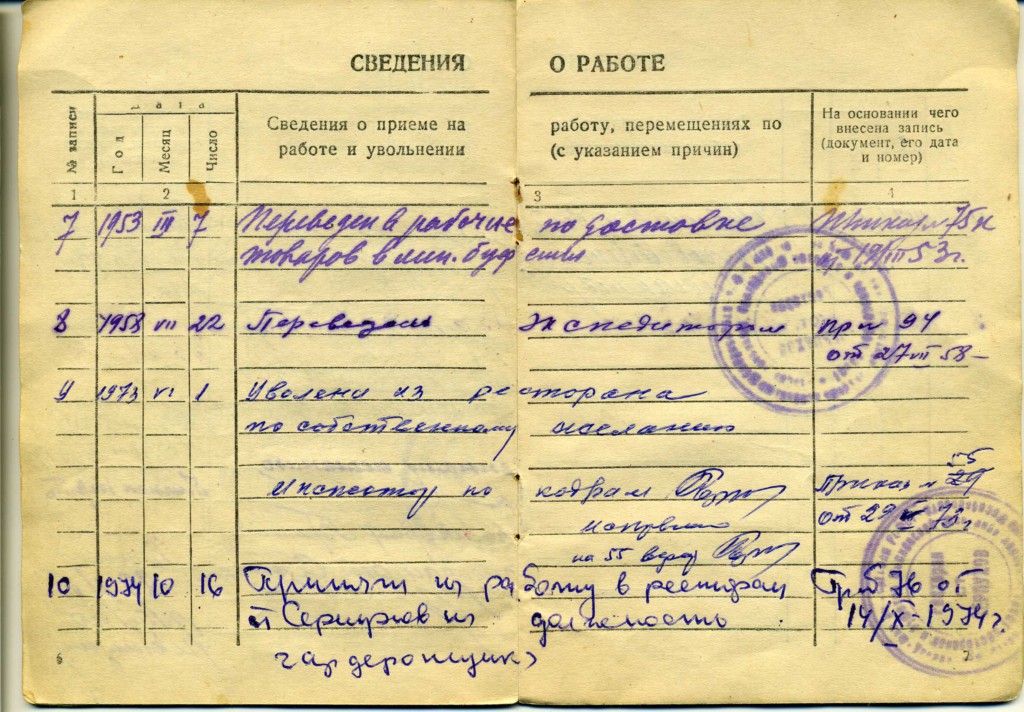 СВЕДЕНИЯ О РАБОТЕ
№ записи
Дата
Год
Месяц
Число
Сведения о приеме на работу, перемещениях по
работе и увольнении (с указанием причин)
На основании чего
внесена запись
(документ, его дата
и номер)
1 2 3 4
7 1953 III 7 Переведен в рабочие по доставке Приказ № 75к
товаров в 19/III 53 г.
8 1958 VII 22 Переведен Экспедитором При 94
от 27 VII 58
9 1973 VI 1 Уволена из ресторана
по собственному желанию
55
Инспектор по кадрам Приказ № 29
от 29 73 г
на 55 верно
10 1974 10 16 Принят на работу в ресторан Пр 76 от
на должность 14/X-1974 г.
гардеробщик
6 7